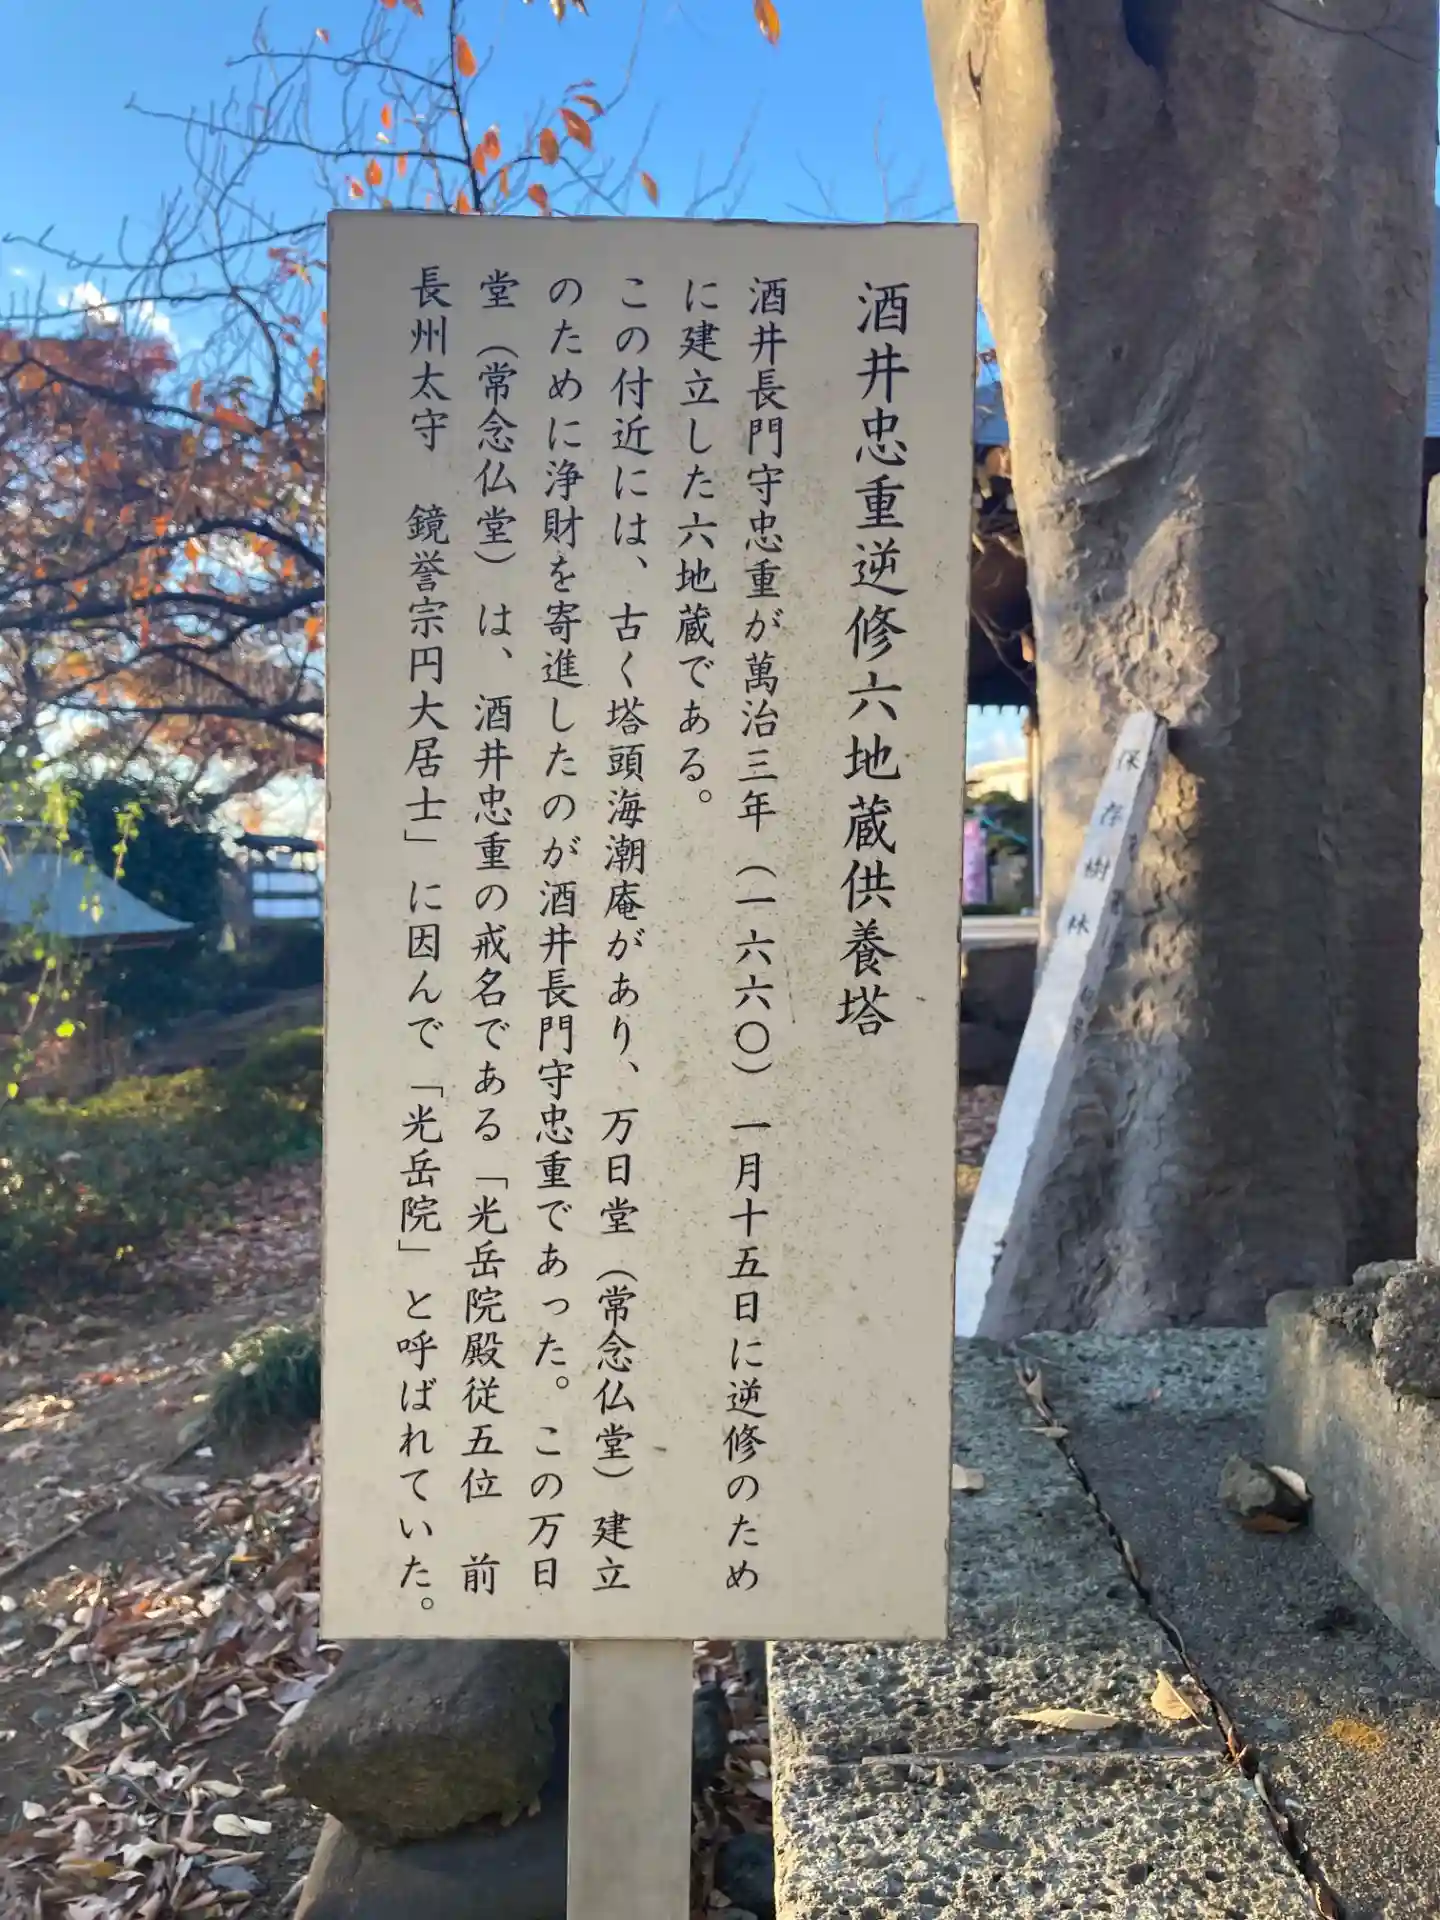 酒井忠重逆修六地蔵供養塔
酒井長門守忠重が萬治三年（一六六〇）一月十五日に逆修のため
に建立した六地蔵である。
この付近には、古く塔頭海潮庵があり、万日堂（常念仏堂）建立
のために浄財を寄進したのが酒井長門守忠重であった。この万日
堂（常念仏堂）は、酒井忠重の戒名である「光岳院殿従五位　前
長州太守　鏡誉宗円大居士」に因んで「光岳院」と呼ばれていた。
保存樹林